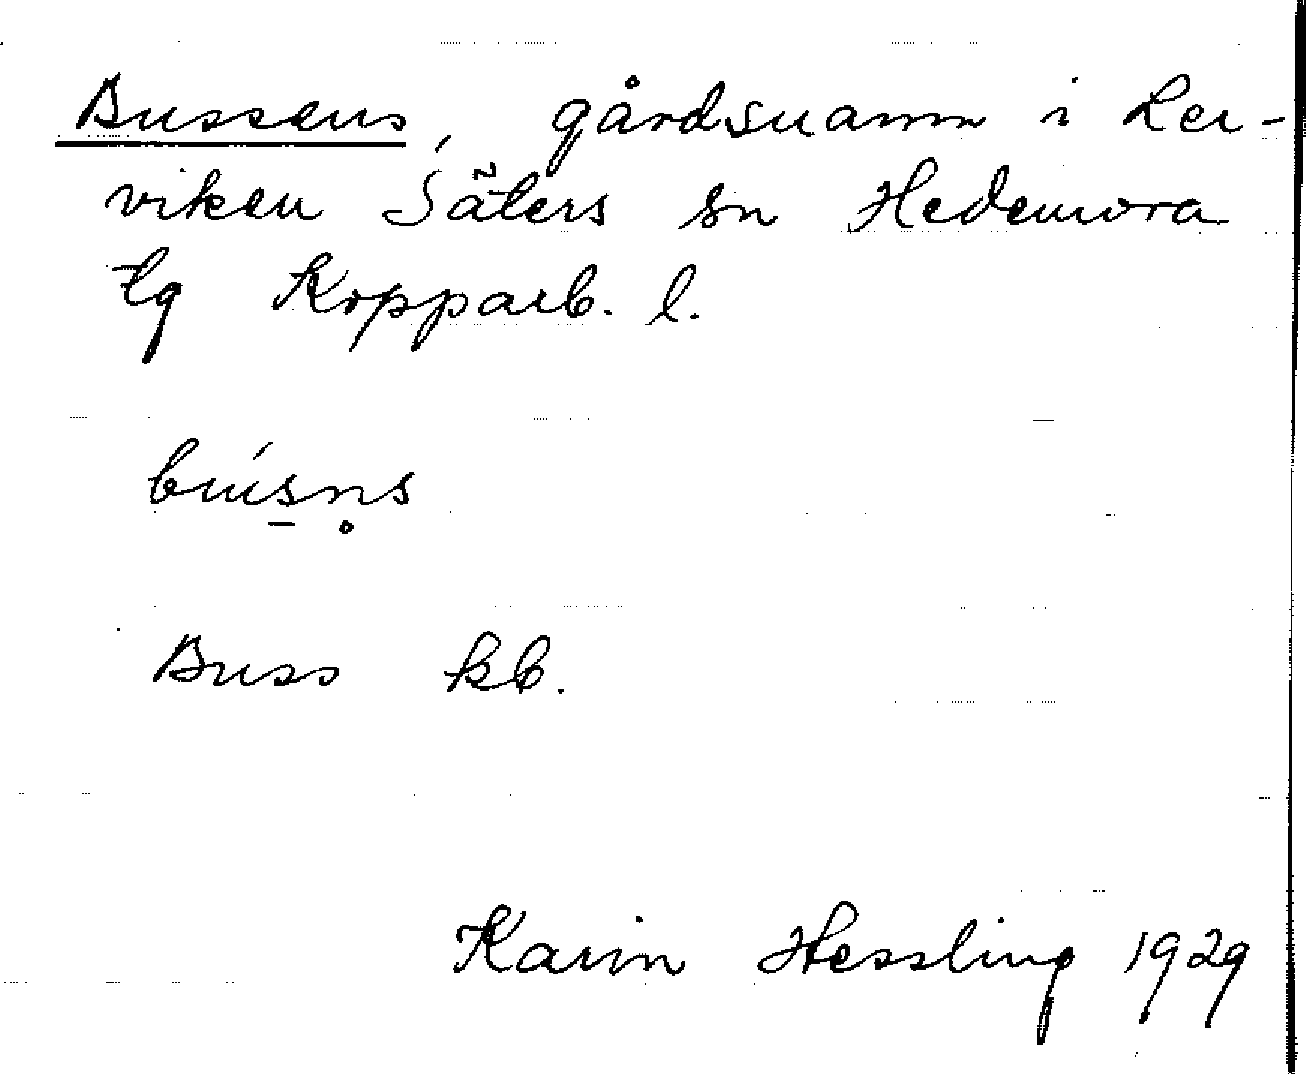 Bussens, gårdsnamn i Ler-
viken Säters sn Hedemora
tg Kopparb. l.
bús̠n̥s
Buss kb.
Karin Hessling 1929